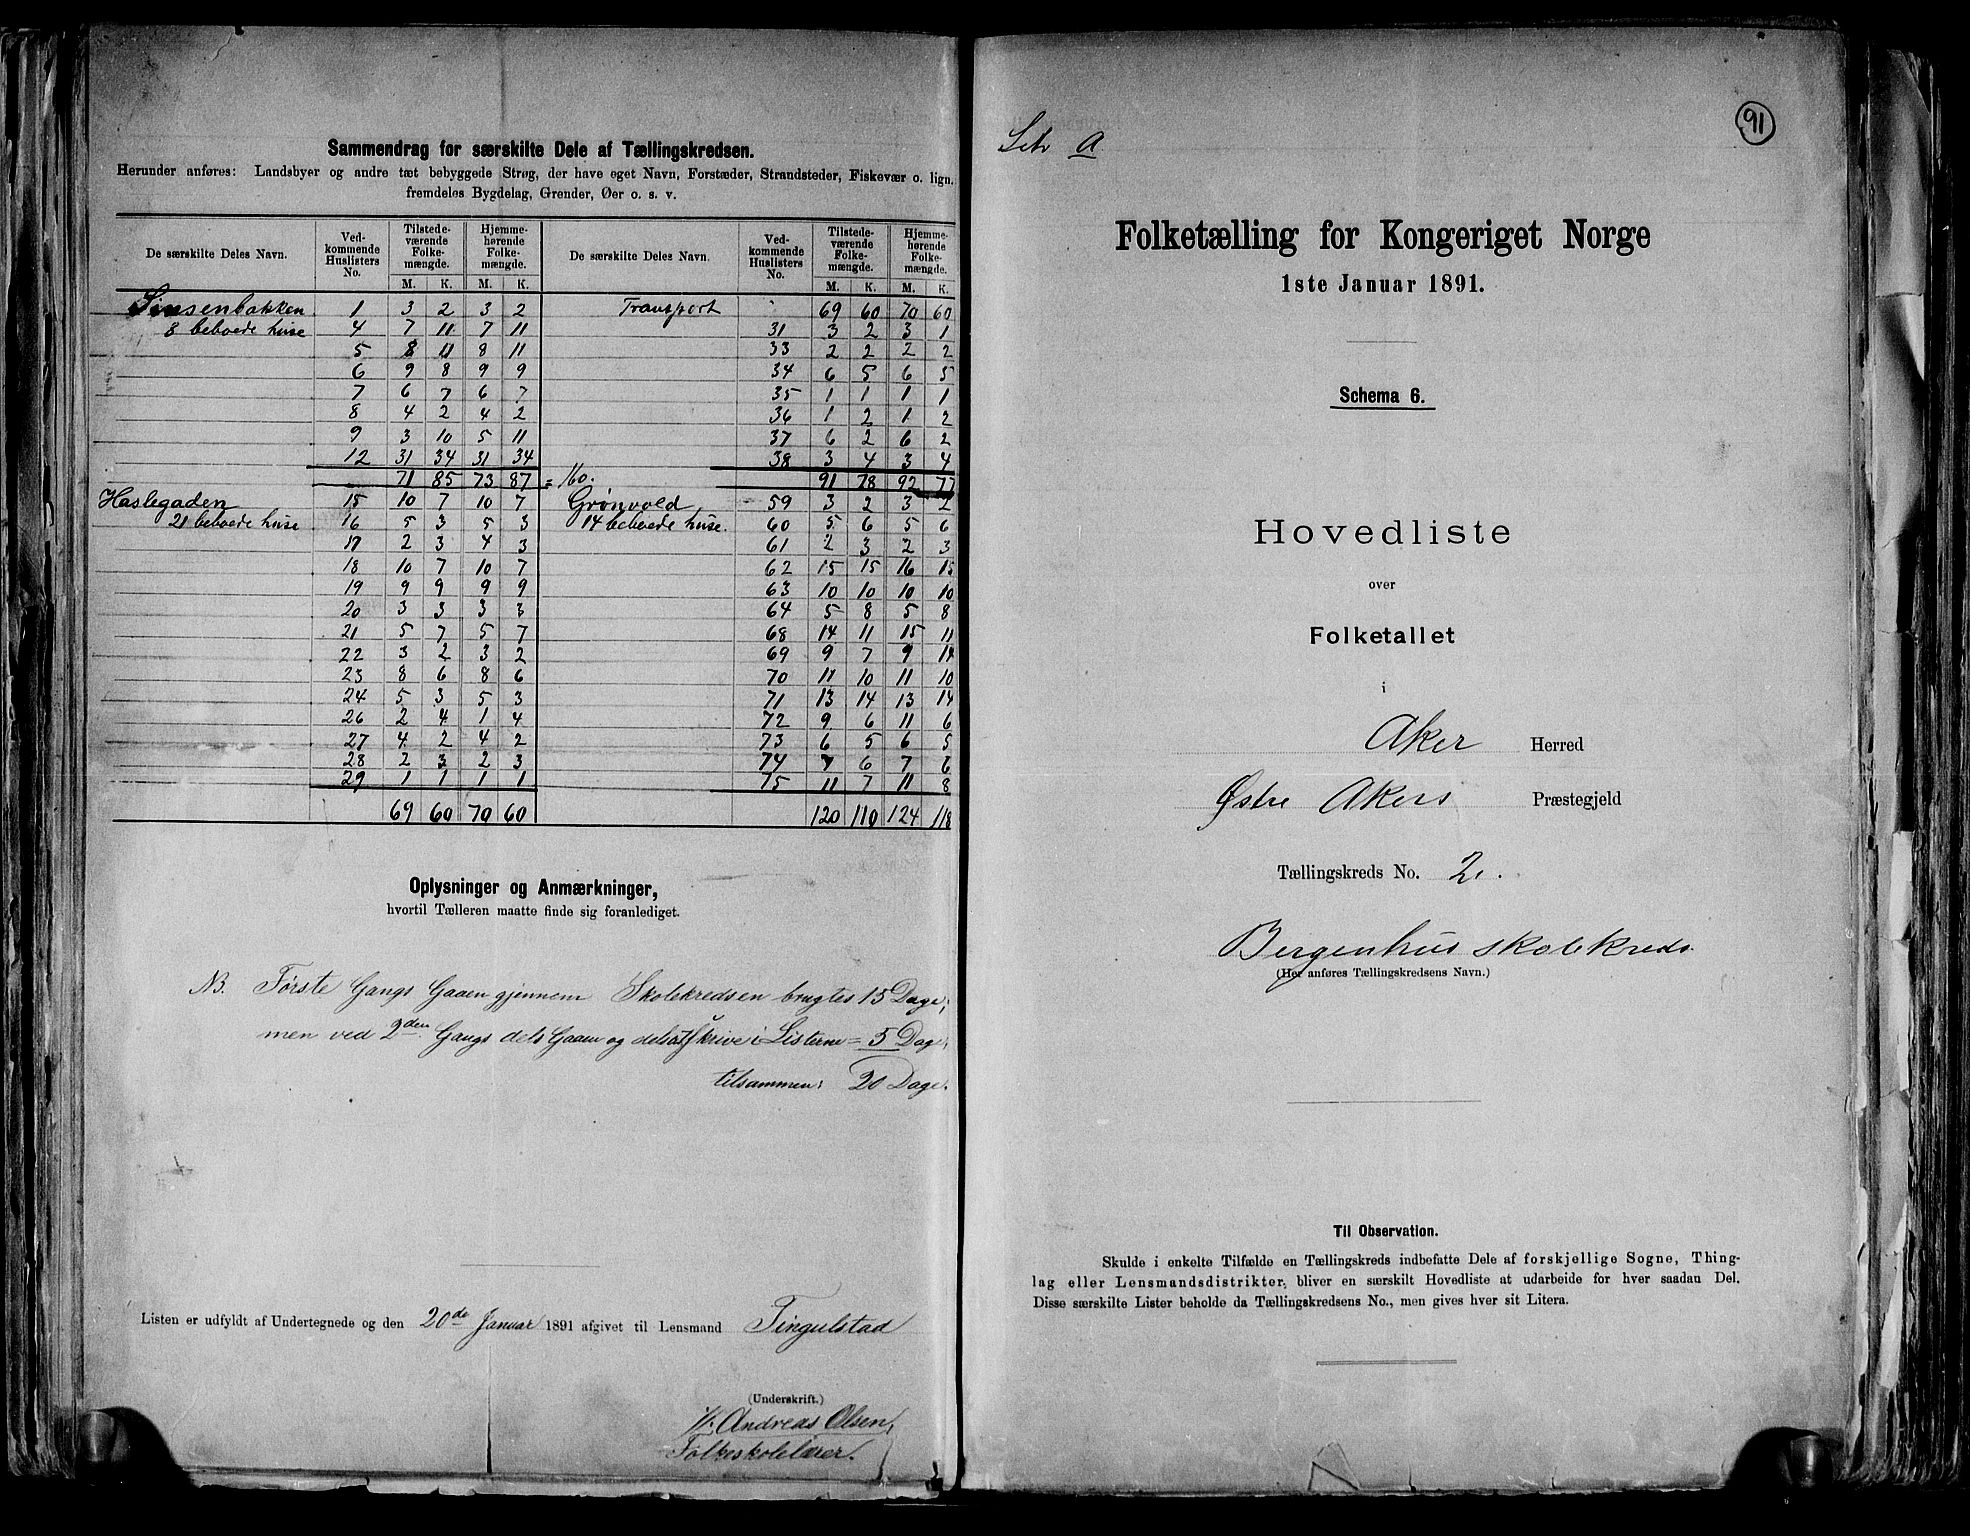 Sammendrag for særskilte Dele af Tællingskredsen.
Herunder anføres: Landsbyer og andre tæt bebyggede Strøg, der have eget Navn, Forstæder, Strandsteder, Fiskevær o. lign.
fremdeles Bygdelag, Grender, Øer o. s. v.
De særskilte Deles Navn. Ved-kommende Huslisters No. Tilstede-værende Folke-mængde. Hjemme-hørende Folke-mængde. De særskilte Deles Navn. Ved-kommende Huslisters No. Tilstede-værende Folke-mængde. Hjemme-hørende Folke-mængde.
M. K. M. K. M. K. M. K.
Sinsenbakken 1 3 2 3 2 Transport " 69 60 70 60
8 beboede huse 4 7 11 7 11 31 3 2 3 1
5 8 11 8 11 33 2 2 2 2
6 9 8 9 9 34 6 5 6 5
7 6 7 6 7 35 1 1 1 1
8 4 2 4 2 36 1 2 1 2
9 3 10 5 11 37 6 2 6 2
12 31 34 31 34 38 3 4 3 4
71 85 73 87 = 160. 91 78 92 77
Haslegaden 15 10 7 10 7 Grønvold 59 3 2 3 2
21 beboede huse 16 5 3 5 3 14 beboede huse. 60 5 6 5 6
17 2 3 4 3 61 2 3 2 3
18 10 7 10 7 62 15 15 16 15
19 9 9 9 9 63 10 10 10 10
20 3 3 3 3 64 5 8 5 8
21 5 7 5 7 68 14 11 15 11
22 3 2 3 2 69 9 7 9 14
23 8 6 8 6 70 11 10 11 10
24 5 3 5 3 71 13 14 13 14
26 2 4 1 4 72 9 6 11 6
27 4 2 4 2 73 6 5 6 5
28 2 3 2 3 74 7 6 7 6
29 1 1 1 1 75 11 7 11 8
69 60 70 60 120 110 124 118
Oplysninger og Anmærkninger,
hvortil Tælleren maatte finde sig foranlediget.
NB. Første Gangs Gaaen gjennem Skolekredsen brugtes 15 Dage,
men ved 2den Gangs dels Gaaen og dels at skrive i Listerne = 5 Dage,
tilsammen: 20 Dage.
Listen er udfyldt af Undertegnede og den 20de Januar 1891 afgivet til Lensmand Tingulstad
(Underskrift.)
Andreas Olsen,
Folkeskolelærer.
91
Litr A.
Folketælling for Kongeriget Norge
1ste Januar 1891.
Schema 6.
Hovedliste
over
Folketallet
i
Aker Herred
Østre Akers Præstegjeld
Tællingskreds No. 2.
Bergenhus skolekreds.
(Her anføres Tællingskredsens Navn.)
Til Observation.
Skulde i enkelte Tilfælde en Tællingskreds indbefatte Dele af forskjellige Sogne, Thing-
lag eller Lensmandsdistrikter, bliver en særskilt Hovedliste at udarbeide for hver saadan Del.
Disse særskilte Lister beholde da Tællingskredsens No., men gives hver sit Litera.